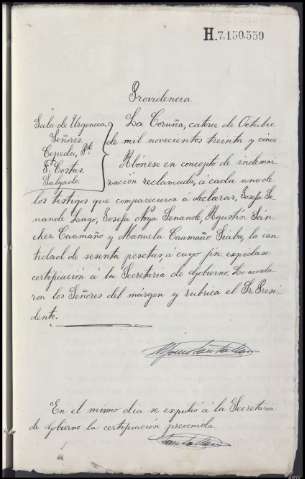 H.7.150.559
Providencia
Sala de Urgencia
Señores
Cepeda, Pte.
Costas
Salgado
La Coruña, catorce de Octubre
de mil novecientos treinta y cinco
Abónese en concepto de indem-
nización reclamada, á cada uno de
los testigos que comparecieron a declarar, Josefa Se-
nande Josefa Senande, Agustín Sán-
chez Caamaño y Manuela Caamaño la can-
tidad de sesenta pesetas, a cuyo fin expídase
certificación á la Secretaría de Gobierno. Lo manda-
ron los Señores del márgen y rubrica el Sr. Presi-
dente.
En el mismo día se expidió á la Secretaría
de Gobierno la certificación prevenida.